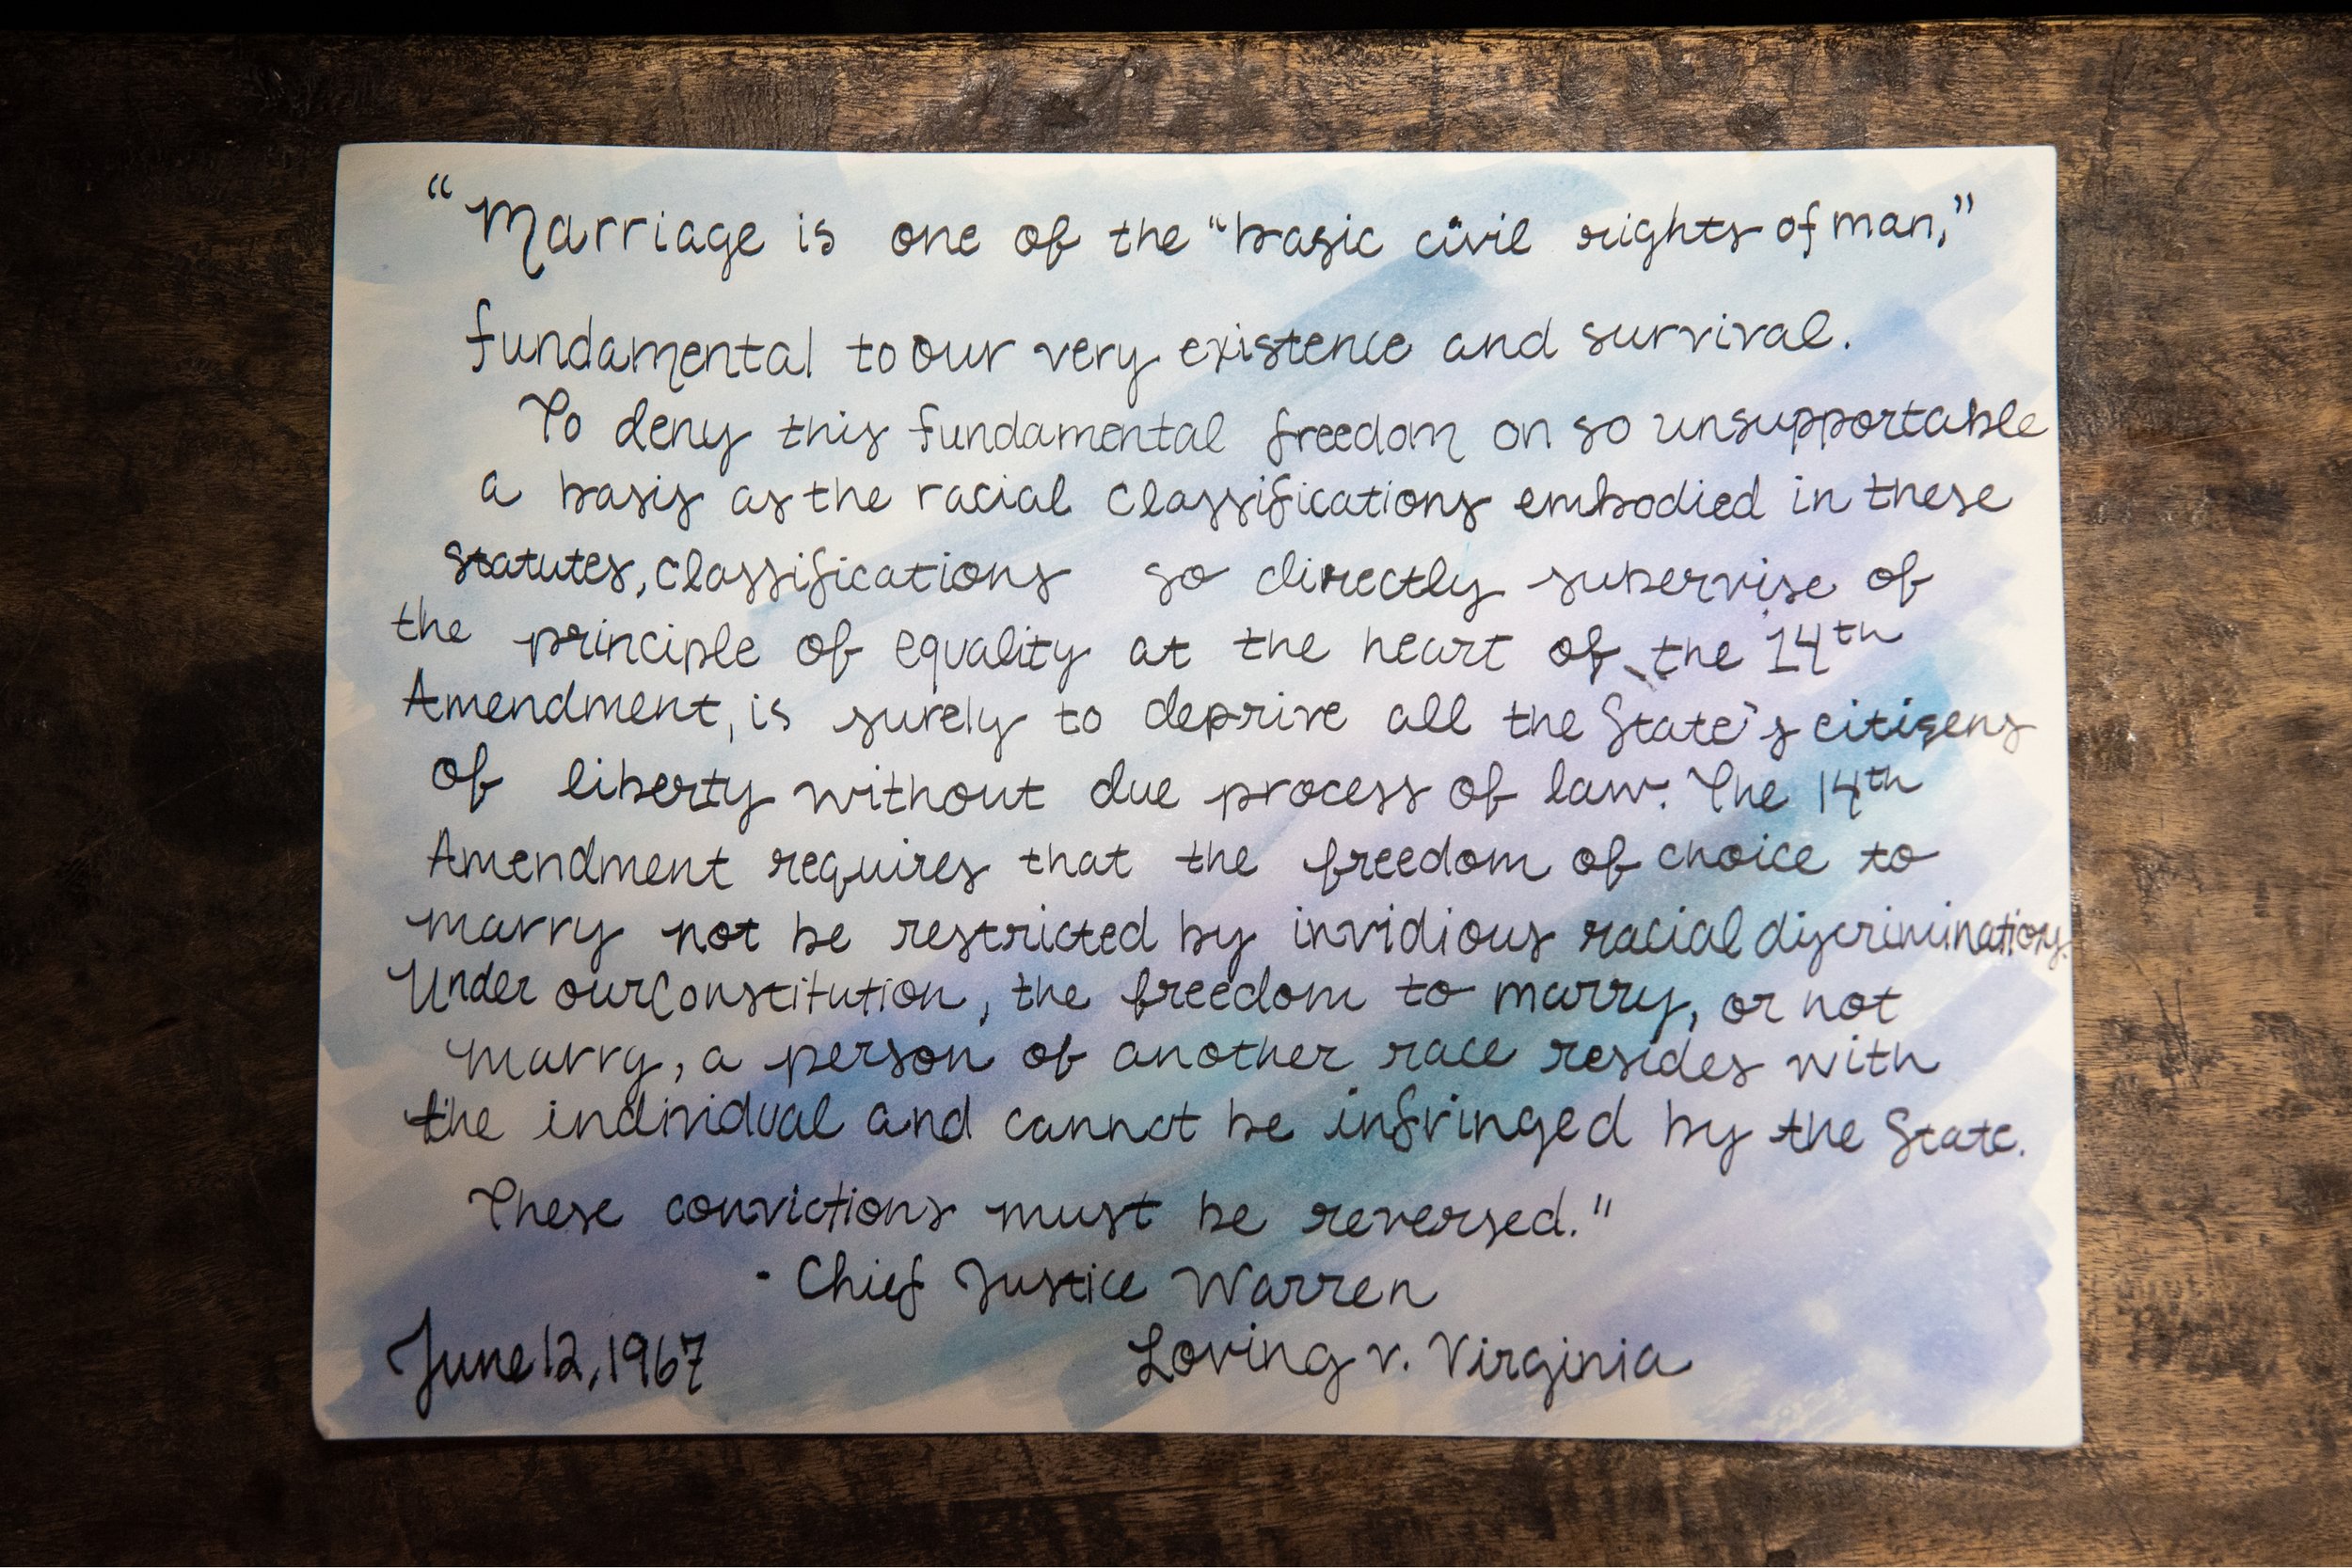 “Marriage is one of the “basic civil rights of man,”
fundamental to our very existence and survival.
To deny this fundamental freedom on so unsupportable
a basis as the racial classifications embodied in these
statutes, classifications so directly subervise of
the principle of equality at the heart of the 14th
Amendment, is surely to deprive all the State's citizens
of liberty without due process of law. The 14th
Amendment requires that the freedom of choice to
marry not be restricted by invidious racial discriminations.
Under our Constitution, the freedom to marry, or not
marry, a person of another race resides with
the individual and cannot be infringed by the State.
These convictions must be reversed."
- Chief Justice Warren
June 12, 1967 Loving v. Virginia